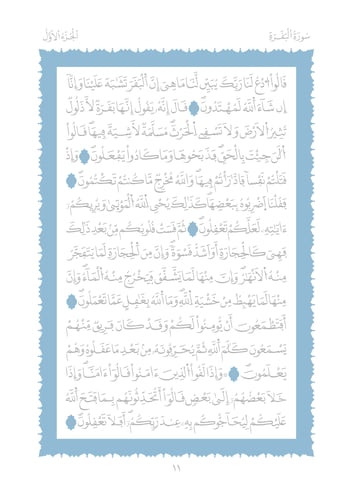 سُورَةُ الْبَقَرَةِ الْجُزْءُ الْأَوَّلُ
قَالُوا۟ ادْعُ لَنَا رَبَّكَ يُبَيِّن لَّنَا مَا هِىَ إِنَّ الْبَقَرَ تَشَٰبَهَ عَلَيْنَا وَإِنَّا
إِن شَآءَ اللَّهُ لَمُهْتَدُونَ قَالَ إِنَّهُۥ يَقُولُ إِنَّهَا بَقَرَةٌ لَّا ذَلُولٌ
تُثِيرُ الْأَرْضَ وَلَا تَسْقِى الْحَرْثَ مُسَلَّمَةٌ لَّا شِيَةَ فِيهَا قَالُوا۟
الْـَٰٔنَ جِئْتَ بِالْحَقِّ فَذَبَحُوهَا وَمَا كَادُوا۟ يَفْعَلُونَ وَإِذْ
قَتَلْتُمْ نَفْسًا فَادَّٰرَْٰٔتُمْ فِيهَا وَاللَّهُ مُخْرِجٌ مَّا كُنتُمْ تَكْتُمُونَ
فَقُلْنَا اضْرِبُوهُ بِبَعْضِهَا كَذَٰلِكَ يُحْىِ اللَّهُ الْمَوْتَىٰ وَيُرِيكُمْ
ءَايَٰتِهِۦ لَعَلَّكُمْ تَعْقِلُونَ ثُمَّ قَسَتْ قُلُوبُكُم مِّنۢ بَعْدِ ذَٰلِكَ
فَهِىَ كَالْحِجَارَةِ أَوْ أَشَدُّ قَسْوَةً وَإِنَّ مِنَ الْحِجَارَةِ لَمَا يَتَفَجَّرُ
مِنْهُ الْأَنْهَٰرُ وَإِنَّ مِنْهَا لَمَا يَشَّقَّقُ فَيَخْرُجُ مِنْهُ الْمَآءُ وَإِنَّ
مِنْهَا لَمَا يَهْبِطُ مِنْ خَشْيَةِ اللَّهِ وَمَا اللَّهُ بِغَٰفِلٍ عَمَّا تَعْمَلُونَ
أَفَتَطْمَعُونَ أَن يُؤْمِنُوا۟ لَكُمْ وَقَدْ كَانَ فَرِيقٌ مِّنْهُمْ
يَسْمَعُونَ كَلَٰمَ اللَّهِ ثُمَّ يُحَرِّفُونَهُۥ مِنۢ بَعْدِ مَا عَقَلُوهُ وَهُمْ
يَعْلَمُونَ وَإِذَا لَقُوا۟ الَّذِينَ ءَامَنُوا۟ قَالُوٓا۟ ءَامَنَّا وَإِذَا
خَلَا بَعْضُهُمْ إِلَىٰ بَعْضٍ قَالُوٓا۟ أَتُحَدِّثُونَهُم بِمَا فَتَحَ اللَّهُ
عَلَيْكُمْ لِيُحَآجُّوكُم بِهِۦ عِندَ رَبِّكُمْ أَفَلَا تَعْقِلُونَ
١١